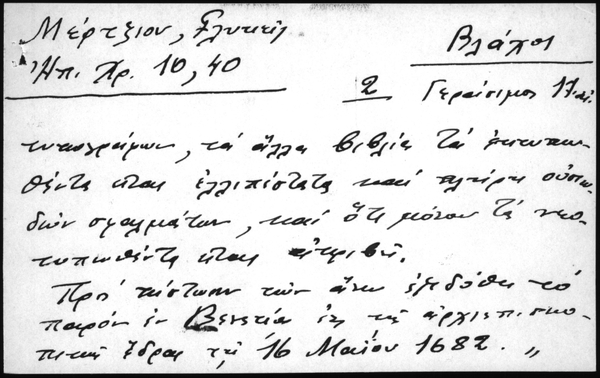 Μέρτζιου,
Βλάχοι
Ἠπ. Χρ. 10, 40
2 Γεράσιμος 17
τυπογράφων, τά ἄλλα βιβλία τά ἐκτυπω-
θέντα εἶναι ἐλλιπέστατα καί πλήρη οὐσιω-
δῶν σφαλμάτων, καί ὅτι μόνον τά νεο-
τυπωθέντα εἶναι ἀκριβῆ.
Πρός πίστωσιν τῶν ἄνω ἐξεδόθη τό
παρόν ἐν Βενετίᾳ ἐκ τῆς ἀρχιεπισκο-
πικῆς ἕδρας τῇ 16 Μαΐου 1682. "